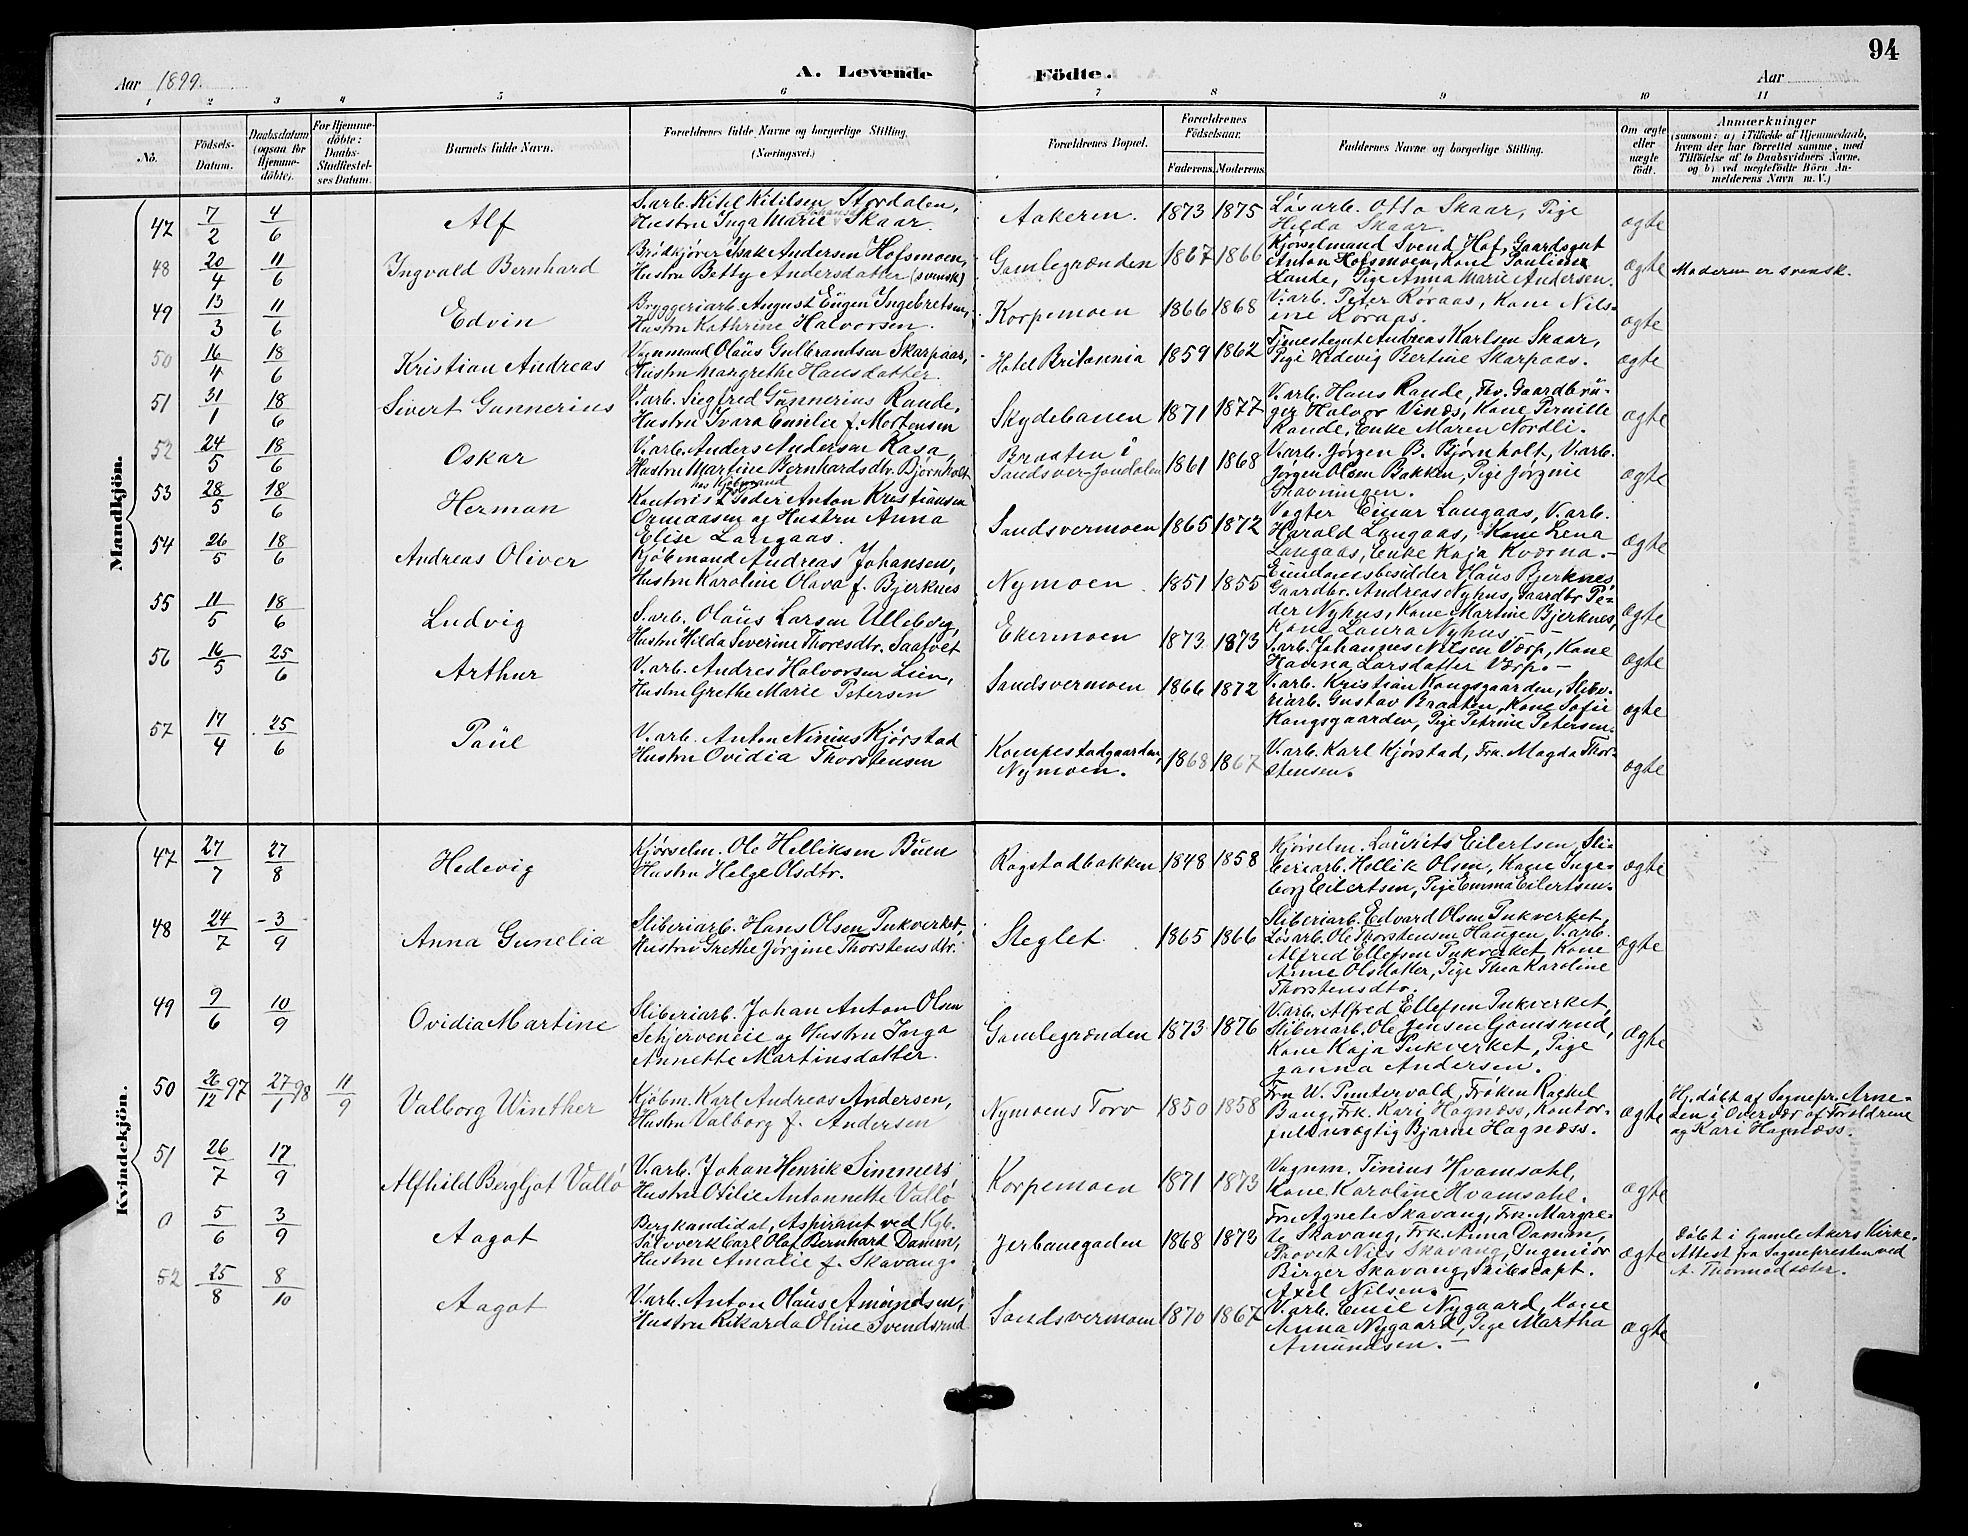 94
Aar 1899.
A. Levende Födte.
Aar
1 2 3 4 5 6 7 8 9 10 11
No.
Födsels-Datum.
Daabsdatum (ogsaa for Hjemme-döbte).
For Hjemme-döbte: Daabs-Stadfæstel-ses Datum.
Barnets fulde Navn.
Forældrenes fulde Navne og borgerlige Stilling. (Næringsvei.)
Forældrenes Bopæl.
Forældrenes Födselsaar.
Faderens. Moderens.
Faddernes Navne og borgerlige Stilling.
Om ægte eller uægte födt.
Anmærkninger
(saasom: a) i Tilfælde af Hjemmedaab, hvem der har forrettet samme, med Tilföielse af to Daabsvidners Navne, og b) ved uægtefödte Börn An-melderens Navn m. V.)
Mandkjön.
47 7/2 4/6 Alf
S.arb. Kitel Kitilsen Stordalen,
Hustru Inga Marie Johansd. Skaar.
Aakeren. 1873 1875
Løsarb. Otto Skaar, Pige
Hilda Skaar.
ægte
48 20/4 11/6 Ingvald Bernhard
Brödkjører Isak Andersen Hofsmoen,
Hustru Betty Andersdatter (svensk)
Gamlegrænden 1867 1866
Kjørselmand Svend Hof, Gaardsgut
Anton Hofsmoen, Kone Pauline
Lande, Pige Anna Marie Andersen.
ægte
Moderen er svensk.
49 13/3 11/6 Edvin
Bryggeriarb. August Eugen Ingebretsen,
Hustru Kathrine Halvorsen.
Korpemoen 1866 1868
V.arb. Peter Røraas, Kone Nils-
ine Røraas.
ægte
50 16/4 18/6 Kristian Andreas
Vognmand Olaus Gulbrandsen Skarpaas,
Hustru Margrethe Hansdatter.
Hotel Britannia 1859 1862
Tjenestegut Andreas Karlsen Skaar,
Pige Hedevig Bertine Skarpaas.
ægte
51 31/1 18/6 Sivert Gunnerius
V.arb. Siegfred Gunnerius Rande,
Hustru Ivara Emilie f. Mortensen
Skydebanen 1871 1877
V.arb. Hans Rande, Fhv. Gaardbru-
ger Halvor Vinæs, Kone Pernille
Rande, Enke Maren Nordli.
ægte
52 24/5 18/6 Oskar
V.arb. Anders Andersen Kasa,
Hustru Martine Bernhardsdtr. Bjørnholt
Braaten i
Sandsver-Jondalen 1861 1868
V.arb. Jørgen B. Bjørnholt, V.arb.
Jørgen Olsen Bakken, Pige Jørgine
Thavningen.
ægte
53 28/5 18/6 Herman
hos Kjøbmand
Kontorist Peder Anton Kristiansen
Ormaasen og Hustru Anna
Elise Langaas.
Sandsvermoen 1865 1872
Vogter Einar Langaas, V.arb.
Harald Langaas, Kone Lena
Langaas, Enke Kaja Kværna.
ægte
54 26/5 18/6 Andreas Oliver
Kjøbmand Andreas Johansen,
Hustru Karoline Olava f. Bjerknes
Nymoen 1851 1855
Eiendomsbesidder Olaus Bjerknes,
Gaardbr. Andreas Nyhus, Gaardbr. Pe-
der Nyhus, Kone Martine Bjerknes,
Kone Laura Nyhus.
ægte
55 11/5 18/6 Ludvig
S.arb. Olaus Larsen Ulleberg,
Hustru Hilda Severine Thoresdtr. Saatvet
Ekermoen 1873 1873
S.arb. Johannes Nilsen Værp, Kone
Hanna Larsdatter Værp.
ægte
56 16/5 25/6 Arthur
V.arb. Andres Halvorsen Lien,
Hustru Grethe Marie Petersen
Sandsvermoen 1866 1872
V.arb. Kristian Kongsgaarden, Slibe-
riarb. Gustav Braaten, Kone Sofie
Kongsgaarden, Pige Petrine Petersen.
ægte
57 17/4 25/6 Paul
V.arb. Anton Ninius Kjørstad
Hustru Ovidia Thorstensen
Kompestadgaarden,
Nymoen. 1868 1867
V.arb. Karl Kjørstad, Frk. Magda Thor-
stensen.
ægte
Kvindekjön.
47 27/7 27/8 Hedevig
Kjørselm. Ole Helliksen Buen
Hustru Helge Olsdtr.
Rogstadbakken 1848 1858
Kjørselm. Lauvits Eilertsen, Sli-
beriarb. Hellik Olsen, Kone Inge-
borg Eilertsen, Pige Emma Eilertsen.
ægte
48 24/7 3/9 Anna Gunelia
Sliberiarb. Hans Olsen Pukverket,
Hustru Grethe Jørgine Thorstensdtr.
Steglet 1865 1866
Sliberiarb. Edvard Olsen Pukverket,
Løsarb. Ole Thorstensen Haugen, V.arb.
Alfred Ellefsen Pukverket, Kone
Anne Olsdatter, Pige Thea Karoline
Thorstensdtr.
ægte
49 9/6 10/9 Ovidia Martine
Sliberiarb. Johan Anton Olsen
Schjerveneie og Hustru Inga
Annette Martinsdatter.
Gamlegrænden 1873 1876
V.arb. Alfred Ellefsen Pukverket,
Sliberiarb. Ole Jensen Gomsrud,
Kone Kaja Pukverket, Pige
Janna Andersen.
ægte
50 26/12 97 27/1 98 11/9 Valborg Winther
Kjøbm. Karl Andreas Andersen,
Hustru Valborg f. Andersen
Nymoens Torv 1850 1858
Fru W. Puntervold, Frøken Rachel
Bang, Frk. Kari Hagnæss, Kontor-
fuldmægtig Bjarne Hagnæss.
ægte
Hj.døbt af Sognepr. Arne-
sen i Overvær af Forældrene
og Kari Hagnæss.
51 26/7 17/9 Alfhild Bergljot Vallö
V.arb. Johan Henrik Simmers
Hustru Otilie Antonnette Vallö
Korpemoen 1871 1873
Vognm. Tinius Hvamsahl,
Kone Karoline Hvamsahl.
ægte
0 5/6 3/9 Aagot
Bergkandidat, Aspirant ved Kgb.
Sølvverk Carl Olaf Bernhart Damm,
Hustru Amalie f. Skavang.
Jernbanegaden 1868 1873
Fru Agnete Skavang, Frk. Margre-
te Skavang, Frk. Anna Damm,
Provst Niels Skavang, Ingeniør
Birger Skavang, Skibscapt.
Axel Nilsen.
ægte
Døbt i Gamle Akers Kirke.
Attest fra Sognepresten ved
A. Thormodsæter.
52 25/8 8/10 Aagot
V.arb. Anton Olaus Amundsen,
Hustru Rikarda Oline Svendsrud
Sandsvermoen 1870 1867
V.arb. Emil Nygaard, Kone
Anna Nygaard, Pige Martha
Amundsen.
ægte